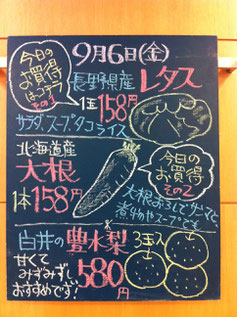 今日の
お買得
はコチラ
その1
9月6日(金)
長野県産 レタス
1玉 158円
サラダ、スープ、タコライス
北海道産
大根
1本 158円
今日の
お買得
その2
大根おろしでサンマと、
煮物やスープです!
白井の豊水梨
3玉入
甘くて
みずみずしい
おすすめです!
580円